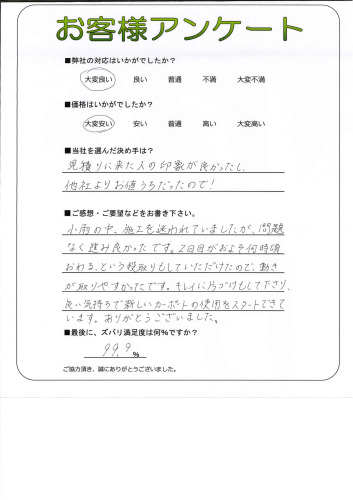 お客様アンケート
■弊社の対応はいかがでしたか？
大変良い 良い 普通 不満 大変不満
■価格はいかがでしたか？
大変安い 安い 普通 高い 大変高い
■当社を選んだ決め手は？
見積りに来た人の印象が良かったし、
他社よりお値うちだったので!
■ご感想・ご要望などをお書き下さい。
小雨の中、施工を迷われていましたが、問題
なく進み良かったです。2日目がおよそ何時頃
おわる、という段取りもしていただけたので、動き
が取りやすかったです。キレイに片づけもして下さり、
良い気持ちで新しいカーポートの使用をスタートできて
います。ありがとうございました。
■最後に、ズバリ満足度は何%ですか？
99.9 %
ご協力頂き、誠にありがとうございました。